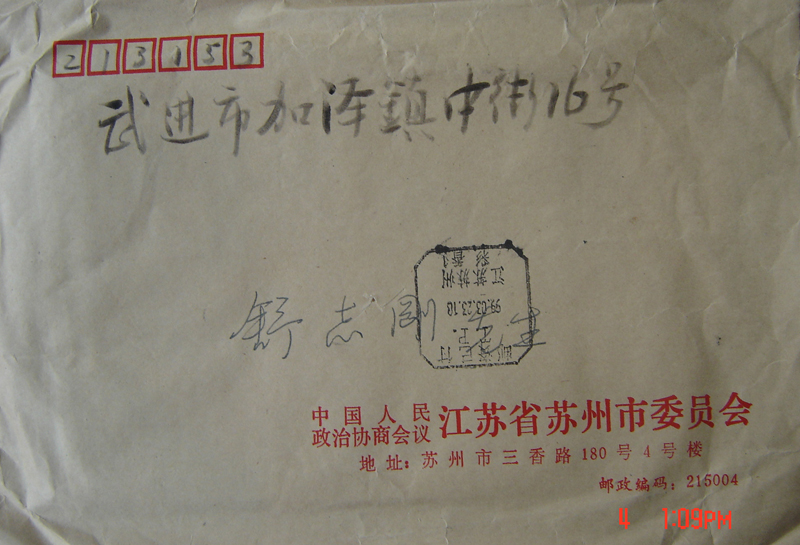 213153
武进市加泽鎮中街16号
江苏苏州
99.03.23.18
邮资已付
舒志刚先生
中国人民
政治协商会议 江苏省苏州市委员会
地址：苏州市三香路180号4号楼
邮政编码：215004
4 1:09PM